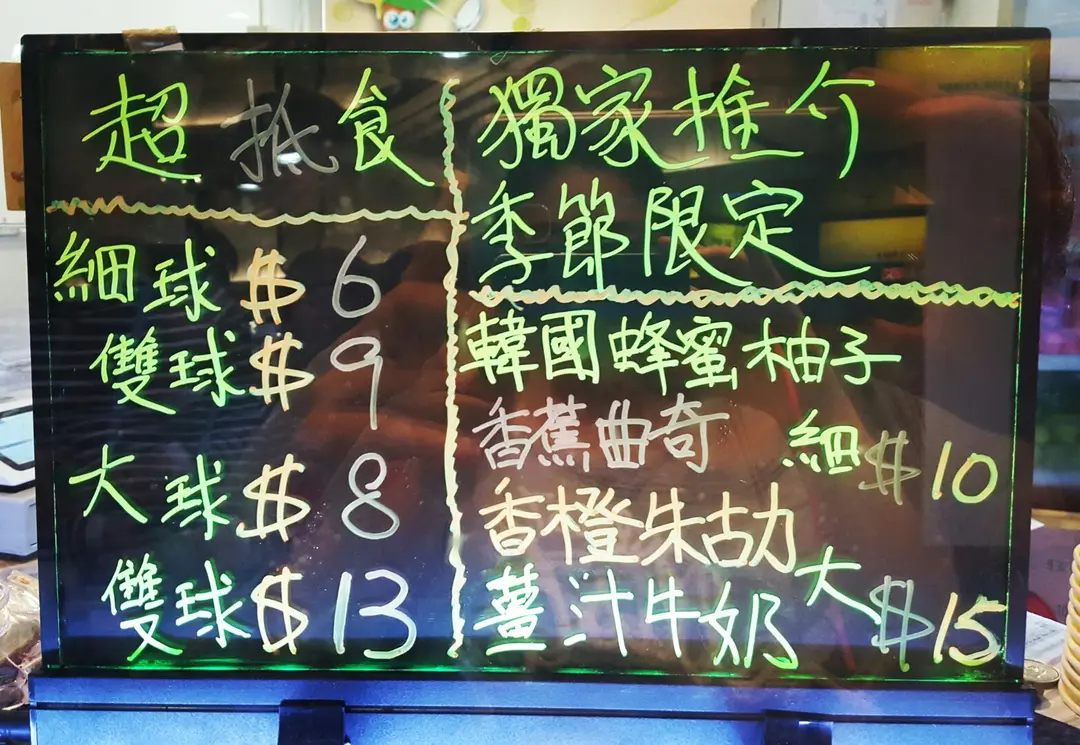 超抵食
細球$6
雙球$9
大球$8
雙球$13
獨家推介
季節限定
韓國蜂蜜柚子
香蕉曲奇 細$10
香橙朱古力
薑汁牛奶 大$15